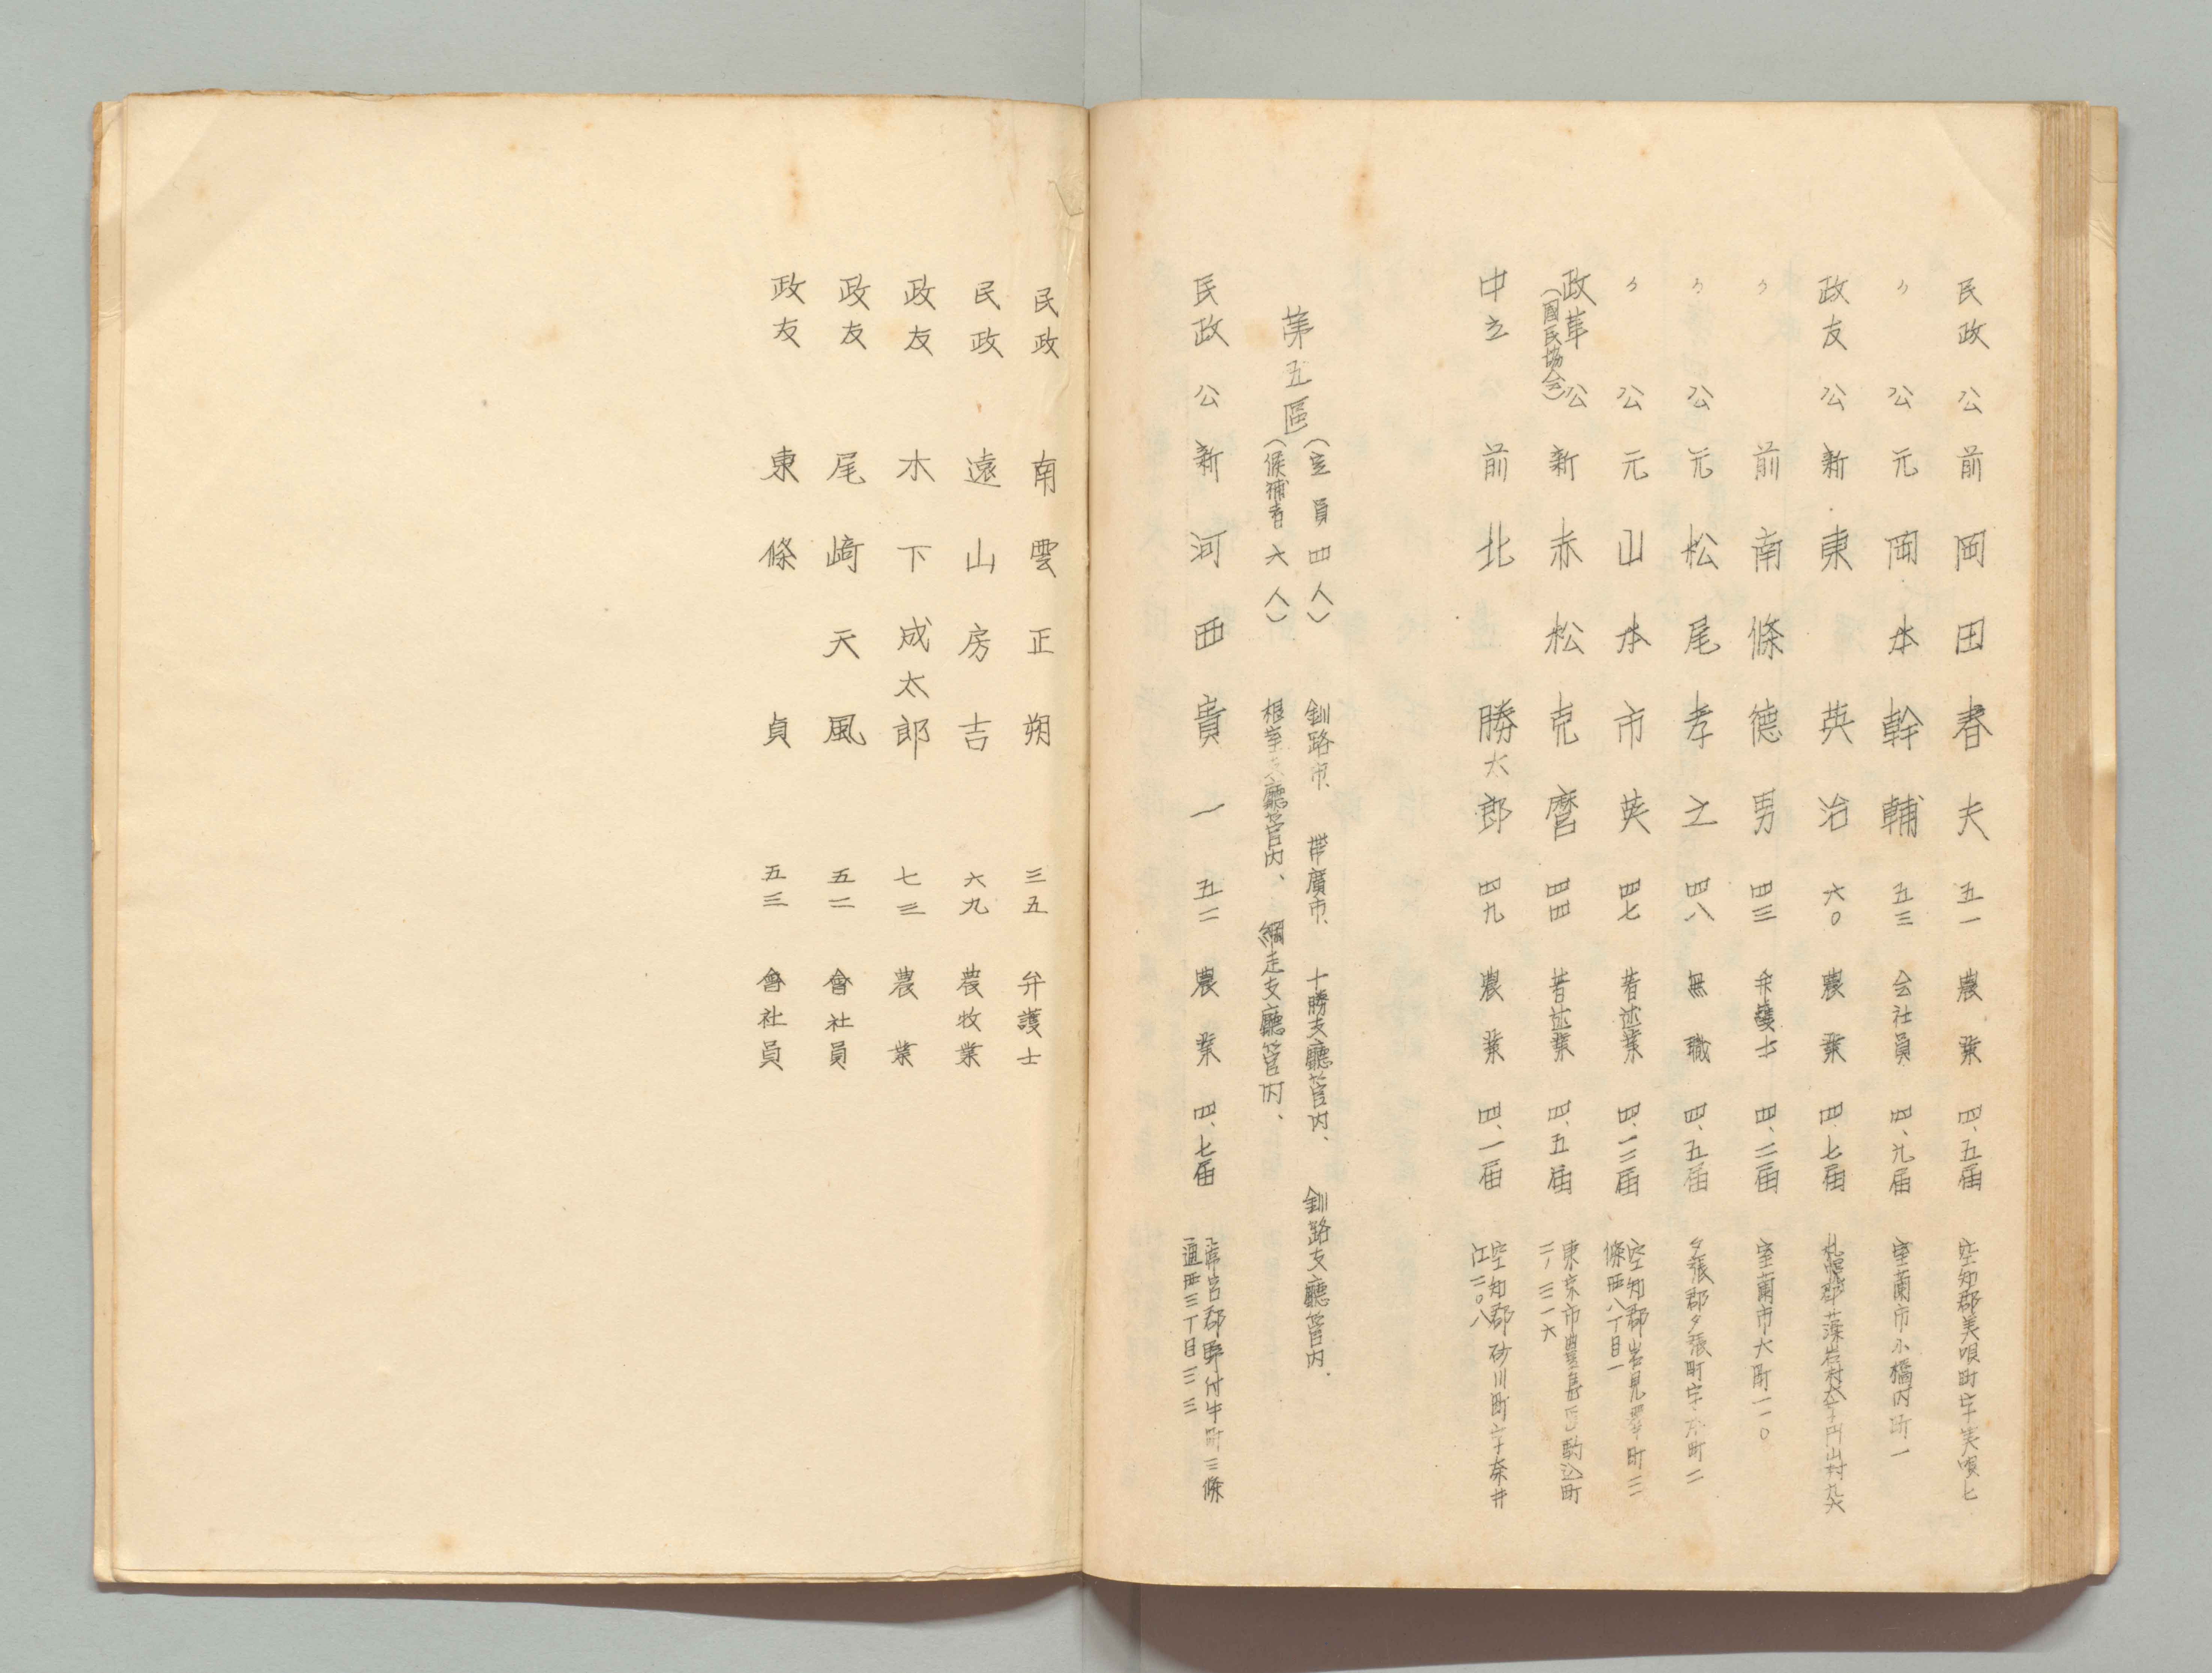 民政 公 前 岡田春夫 五一 農業 四、五届 空知郡美唄町字美唄七
〃 公 元 岡本幹輔 五三 会社員 四、九届 室蘭市小橋内町一
政友 公 新 東英治 六〇 農業 四、七届 札幌郡藻岩村大字円山村九六
〃 前 南條德男 四三 弁護士 四、二届 室蘭市大町一一〇
〃 公 元 松尾孝之 四八 無職 四、五届 夕張郡夕張町字 町二
〃 公 元 山本市英 四七 著述業 四、一二届 空知郡岩見澤町三
條西八丁目一
政革 公 新 赤松克麿 四四 著述業 四、五届 東京市豊島区駒込町
(國民協会)
二ノ三一六
中立 前 北勝太郎 四九 農業 四、一届 空知郡砂川町字奈井
江二〇八
第五區
(定員四人) 釧路市、 帯廣市、 十勝支廳管内、 釧路支廳管内、
(候補者六人) 根室支廳管内、 網走支廳管内、
民政 公 新 河西貴一 五二 農業 四、七届 常呂郡野付牛町三條
通西三丁目三三
民政 南雲正朔 三五 弁護士
民政 遠山房吉 六九 農牧業
政友 木下成太郎 七三 農業
政友 尾崎天風 五二 會社員
政友 東條貞 五三 會社員